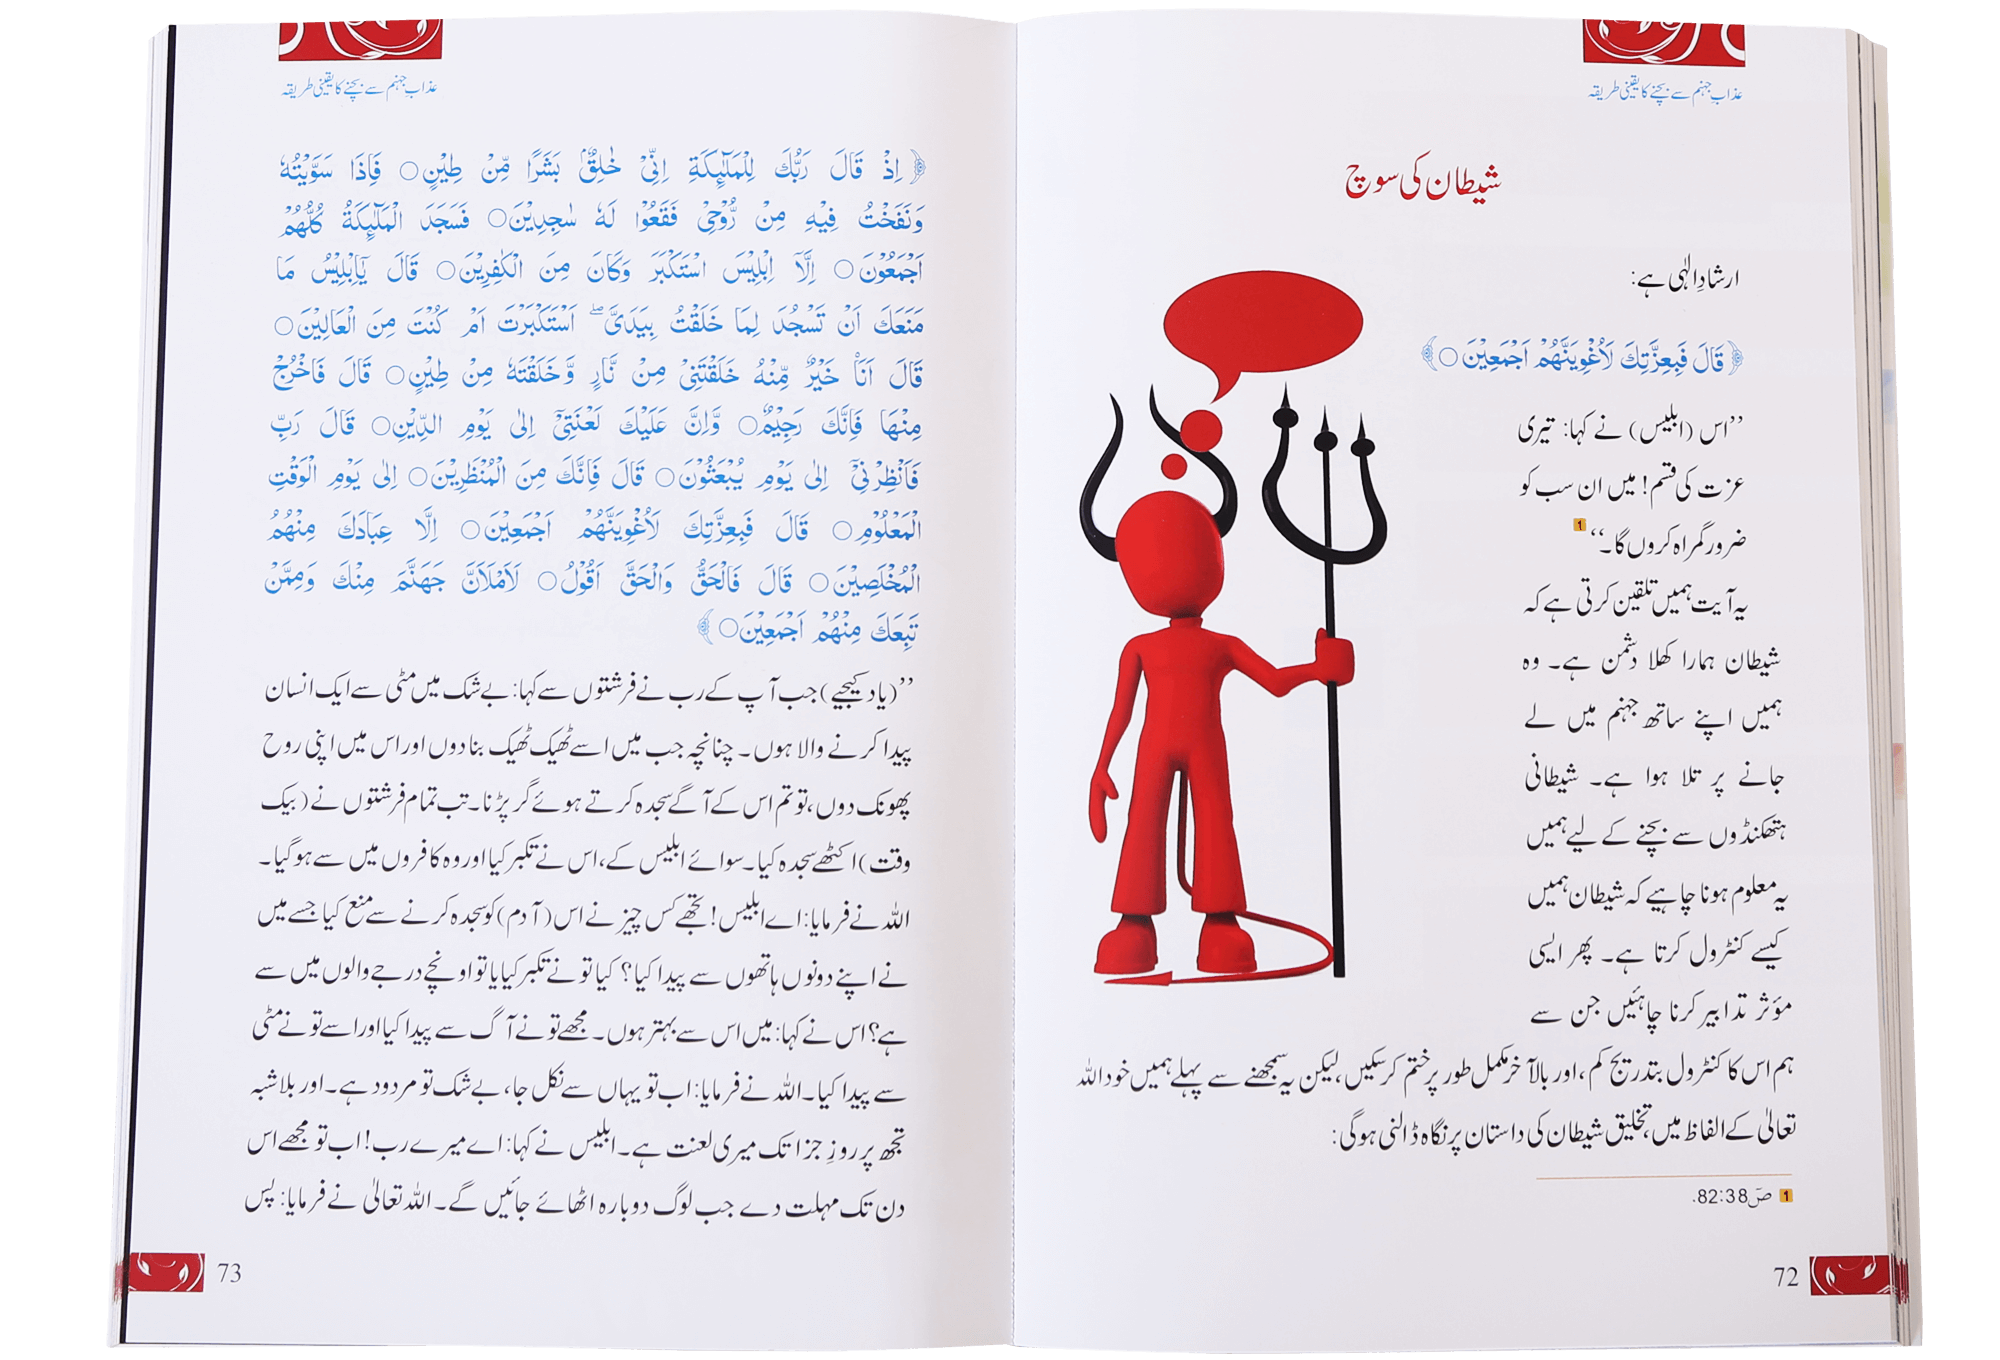 عذابِ جہنم سے بچنے کا یقینی طریقہ
شیطان کی سوچ
ارشادِ الٰہی ہے:
﴿ قَالَ فَبِعِزَّتِكَ لَاُغْوِيَنَّهُمْ اَجْمَعِيْنَ○ ﴾
’’اس (ابلیس) نے کہا: تیری
عزت کی قسم! میں ان سب کو
ضرور گمراہ کروں گا۔‘‘ 1
یہ آیت ہمیں تلقین کرتی ہے کہ
شیطان ہمارا کھلا دشمن ہے۔ وہ
ہمیں اپنے ساتھ جہنم میں لے
جانے پر تلا ہوا ہے۔ شیطانی
ہتھکنڈوں سے بچنے کے لیے ہمیں
یہ معلوم ہونا چاہیے کہ شیطان ہمیں
کیسے کنٹرول کرتا ہے۔ پھر ایسی
مؤثر تدابیر کرنا چاہئیں جن سے
ہم اس کا کنٹرول بتدریج کم، اور بالآخر مکمل طور پر ختم کر سکیں، لیکن یہ سمجھنے سے پہلے ہمیں خود اللہ
تعالیٰ کے الفاظ میں، تخلیقِ شیطان کی داستان پر نگاہ ڈالنی ہوگی:
1 صٓ 82:38.
72
عذابِ جہنم سے بچنے کا یقینی طریقہ
﴿ اِذْ قَالَ رَبُّكَ لِلْمَلٰٓئِكَةِ اِنِّيْ خٰلِقٌۢ بَشَرًا مِّنْ طِيْنٍ○ فَاِذَا سَوَّيْتُهٗ
وَنَفَخْتُ فِيْهِ مِنْ رُّوْحِيْ فَقَعُوْا لَهٗ سٰجِدِيْنَ○ فَسَجَدَ الْمَلٰٓئِكَةُ كُلُّهُمْ
اَجْمَعُوْنَ○ اِلَّآ اِبْلِيْسَ اسْتَكْبَرَ وَكَانَ مِنَ الْكٰفِرِيْنَ○ قَالَ يٰٓاِبْلِيْسُ مَا
مَنَعَكَ اَنْ تَسْجُدَ لِمَا خَلَقْتُ بِيَدَيَّ ۖ اَسْتَكْبَرْتَ اَمْ كُنْتَ مِنَ الْعَالِيْنَ○
قَالَ اَنَا۠ خَيْرٌ مِّنْهُ خَلَقْتَنِيْ مِنْ نَّارٍ وَّخَلَقْتَهٗ مِنْ طِيْنٍ○ قَالَ فَاخْرُجْ
مِنْهَا فَاِنَّكَ رَجِيْمٌ○ وَّاِنَّ عَلَيْكَ لَعْنَتِيْٓ اِلٰى يَوْمِ الدِّيْنِ○ قَالَ رَبِّ
فَاَنْظِرْنِيْٓ اِلٰى يَوْمِ يُبْعَثُوْنَ○ قَالَ فَاِنَّكَ مِنَ الْمُنْظَرِيْنَ○ اِلٰى يَوْمِ الْوَقْتِ
الْمَعْلُوْمِ○ قَالَ فَبِعِزَّتِكَ لَاُغْوِيَنَّهُمْ اَجْمَعِيْنَ○ اِلَّا عِبَادَكَ مِنْهُمُ
الْمُخْلَصِيْنَ○ قَالَ فَالْحَقُّ وَالْحَقَّ اَقُوْلُ○ لَاَمْلَاَنَّ جَهَنَّمَ مِنْكَ وَمِمَّنْ
تَبِعَكَ مِنْهُمْ اَجْمَعِيْنَ○ ﴾
’’(یاد کیجیے) جب آپ کے رب نے فرشتوں سے کہا: بے شک میں مٹی سے ایک انسان
پیدا کرنے والا ہوں۔ چنانچہ جب میں اسے ٹھیک ٹھیک بنا دوں اور اس میں اپنی روح
پھونک دوں، تو تم اس کے آگے سجدہ کرتے ہوئے گر پڑنا۔ تب تمام فرشتوں نے (بیک
وقت) اکٹھے سجدہ کیا۔ سوائے ابلیس کے، اس نے تکبر کیا اور وہ کافروں میں سے ہو گیا۔
اللہ نے فرمایا: اے ابلیس! تجھے کس چیز نے اس (آدم) کو سجدہ کرنے سے منع کیا جسے میں
نے اپنے دونوں ہاتھوں سے پیدا کیا؟ کیا تو نے تکبر کیا یا تو اونچے درجے والوں میں سے
ہے؟ اس نے کہا: میں اس سے بہتر ہوں۔ مجھے تو نے آگ سے پیدا کیا اور اسے تو نے مٹی
سے پیدا کیا۔ اللہ نے فرمایا: اب تو یہاں سے نکل جا، بے شک تو مردود ہے۔ اور بلاشبہ
تجھ پر روزِ جزا تک میری لعنت ہے۔ ابلیس نے کہا: اے میرے رب! اب تو مجھے اس
دن تک مہلت دے جب لوگ دوبارہ اٹھائے جائیں گے۔ اللہ تعالیٰ نے فرمایا: پس
73